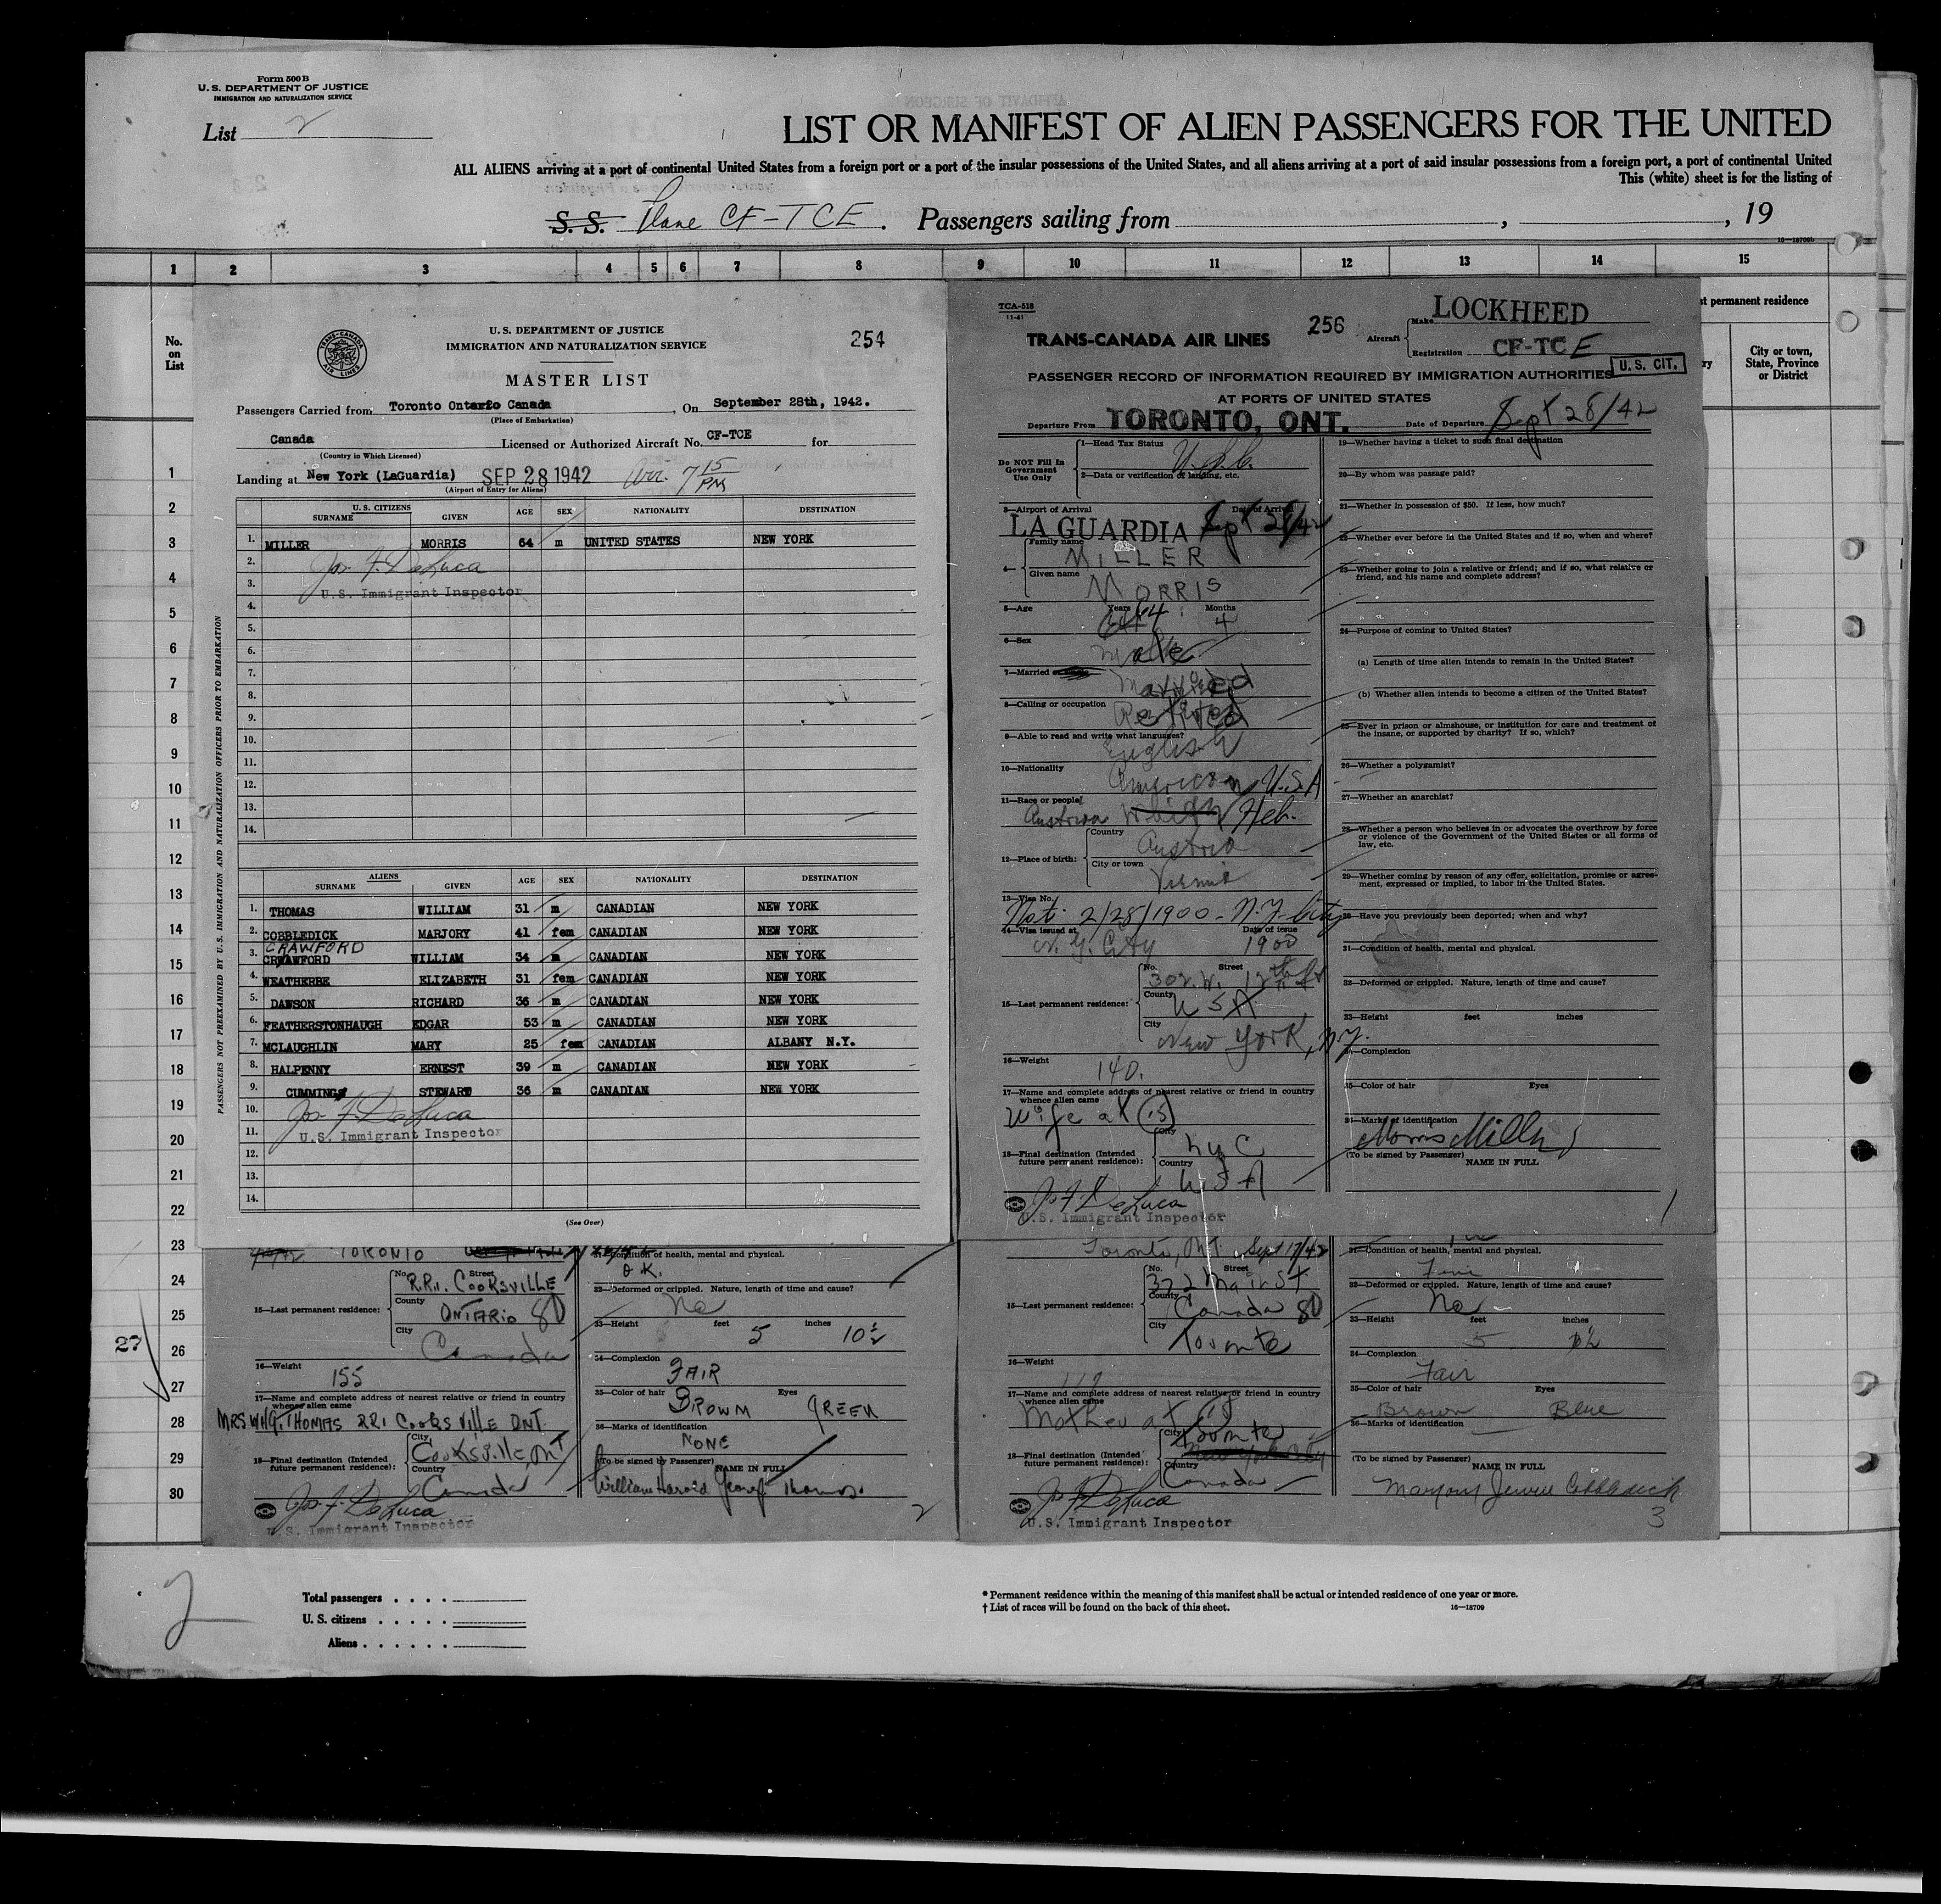 Form 500 B
U. S. DEPARTMENT OF JUSTICE
IMMIGRATION AND NATURALIZATION SERVICE
List 2
LIST OR MANIFEST OF ALIEN PASSENGERS FOR THE UNITED
ALL ALIENS arriving at a port of continental United States from a foreign port or a port of the insular possessions of the United States, and all aliens arriving at a port of said insular possessions from a foreign port, a port of continental United
This (white) sheet is for the listing of
S. S. Plane CF-TCE. Passengers sailing from , , 19
16—18709b
1 2 3 4 5 6 7 8 9 10 11 12 13 14 15
No. on List
st permanent residence
ry
City or town, State, Province or District
1
2
3
4
5
6
7
8
9
10
11
12
13
14
15
16
17
18
19
20
21
22
23
24
25
26
27
28
29
30
27
TRANS-CANADA AIR LINES
U. S. DEPARTMENT OF JUSTICE
IMMIGRATION AND NATURALIZATION SERVICE
254
MASTER LIST
Passengers Carried from Toronto Ontario Canada, On September 28th, 1942.
(Place of Embarkation)
Canada Licensed or Authorized Aircraft No. CF-TCE for
(Country in Which Licensed)
Landing at New York (LaGuardia) SEP 28 1942 Arr. 7 15 PM
(Airport of Entry for Aliens)
PASSENGERS NOT PREEXAMINED BY U. S. IMMIGRATION AND NATURALIZATION OFFICERS PRIOR TO EMBARKATION
U. S. CITIZENS
SURNAME GIVEN AGE SEX NATIONALITY DESTINATION
1. MILLER MORRIS 64 m UNITED STATES NEW YORK
2. Jos. F. DeLuca
3. U.S. Immigrant Inspector
4.
5.
6.
7.
8.
9.
10.
11.
12.
13.
14.
ALIENS
SURNAME GIVEN AGE SEX NATIONALITY DESTINATION
1. THOMAS WILLIAM 31 m CANADIAN NEW YORK
2. COBBLEDICK MARJORY 41 fem CANADIAN NEW YORK
CRAWFORD
3. CRWAWFORD WILLIAM 34 m CANADIAN NEW YORK
4. WEATHERBE ELIZABETH 31 fem CANADIAN NEW YORK
5. DAWSON RICHARD 36 m CANADIAN NEW YORK
6. FEATHERSTONHAUGH EDGAR 53 m CANADIAN NEW YORK
7. MCLAUGHLIN MARY 25 fem CANADIAN ALBANY N.Y.
8. HALPENNY ERNEST 39 m CANADIAN NEW YORK
9. CUMMING STEWART 36 m CANADIAN NEW YORK
10. Jos. F. DeLuca
11. U.S. Immigrant Inspector
12.
13.
14.
(See Over)
TCA-518
11-41
TRANS-CANADA AIR LINES 256
Aircraft Make LOCKHEED
Registration CF-TCE
U. S. CIT.
PASSENGER RECORD OF INFORMATION REQUIRED BY IMMIGRATION AUTHORITIES
AT PORTS OF UNITED STATES
Departure From TORONTO, ONT. Date of Departure Sept 28/42
Do NOT Fill In Government Use Only
1—Head Tax Status U.S.C.
2—Data or verification of landing, etc.
3—Airport of Arrival Date of Arrival
LA GUARDIA Sept 28/42
4— Family name MILLER
Given name MORRIS
5—Age Years 64 Months 4
6—Sex Male
7—Married Married
8—Calling or occupation Retired
9—Able to read and write what languages? English
10—Nationality American U.S.A
11—Race or people Austrian Heb.
12—Place of birth: Country Austria
City or town Vienna
13—Visa No. Nat. 2/28/1900 - N.Y. City
14—Visa issued at N.Y. City Date of issue 1900
15—Last permanent residence: No. Street 302 W. 12th St
County U S A
City New York, N.Y.
16—Weight 140.
17—Name and complete address of nearest relative or friend in country whence alien came
Wife at (15)
18—Final destination (Intended future permanent residence): City NYC
Country U S A
Jos. F. DeLuca
U.S. Immigrant Inspector
19—Whether having a ticket to such final destination
20—By whom was passage paid?
21—Whether in possession of $50. If less, how much?
22—Whether ever before in the United States and if so, when and where?
23—Whether going to join a relative or friend; and if so, what relative or friend, and his name and complete address?
24—Purpose of coming to United States?
(a) Length of time alien intends to remain in the United States?
(b) Whether alien intends to become a citizen of the United States?
25—Ever in prison or almshouse, or institution for care and treatment of the insane, or supported by charity? If so, which?
26—Whether a polygamist?
27—Whether an anarchist?
28—Whether a person who believes in or advocates the overthrow by force or violence of the Government of the United States or all forms of law, etc.
29—Whether coming by reason of any offer, solicitation, promise or agreement, expressed or implied, to labor in the United States.
30—Have you previously been deported; when and why?
31—Condition of health, mental and physical.
32—Deformed or crippled. Nature, length of time and cause?
33—Height feet inches
34—Complexion
35—Color of hair Eyes
36—Marks of identification
Morris Miller
(To be signed by Passenger) NAME IN FULL
1
TORONTO
15—Last permanent residence: No. Street R.R.1. COOKSVILLE
County ONTARIO
City Canada
16—Weight 155
17—Name and complete address of nearest relative or friend in country whence alien came
MRS W.H.G. THOMAS RR1 COOKSVILLE ONT.
18—Final destination (Intended future permanent residence): City Cooksville, Ont
Country Canada
Jos. F. DeLuca
U.S. Immigrant Inspector
31—Condition of health, mental and physical.
O.K.
32—Deformed or crippled. Nature, length of time and cause?
No
33—Height feet 5 inches 10½
34—Complexion FAIR
35—Color of hair BROWN Eyes GREEN
36—Marks of identification NONE
(To be signed by Passenger) NAME IN FULL
William Harold George Thomas.
2
Toronto, Ont. Sept 17/42
15—Last permanent residence: No. Street 322 Main St
County Canada
City Toronto
16—Weight
17—Name and complete address of nearest relative or friend in country whence alien came
Mother at 15
18—Final destination (Intended future permanent residence): City Toronto
Country Canada
Jos. F. DeLuca
U.S. Immigrant Inspector
31—Condition of health, mental and physical.
Fine
32—Deformed or crippled. Nature, length of time and cause?
No
33—Height feet 5 inches
34—Complexion Fair
35—Color of hair Brown Eyes Blue
36—Marks of identification
(To be signed by Passenger) NAME IN FULL
Marjory Cobbledick
3
2
Total passengers . . . .
U. S. citizens . . . . .
Aliens . . . . . .
* Permanent residence within the meaning of this manifest shall be actual or intended residence of one year or more.
† List of races will be found on the back of this sheet.
16—18709